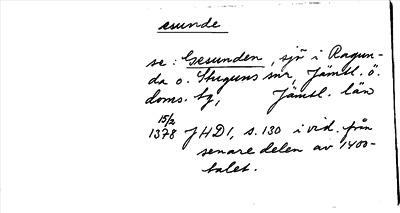 esunde
se: Gesunden, sjö i Ragun-
da o. Stuguns snr, Jämtl. ö.
doms. tg, Jämtl. län
15/2
1378 JHD1, s. 130 i vid. från
senare delen av 1400-
talet.